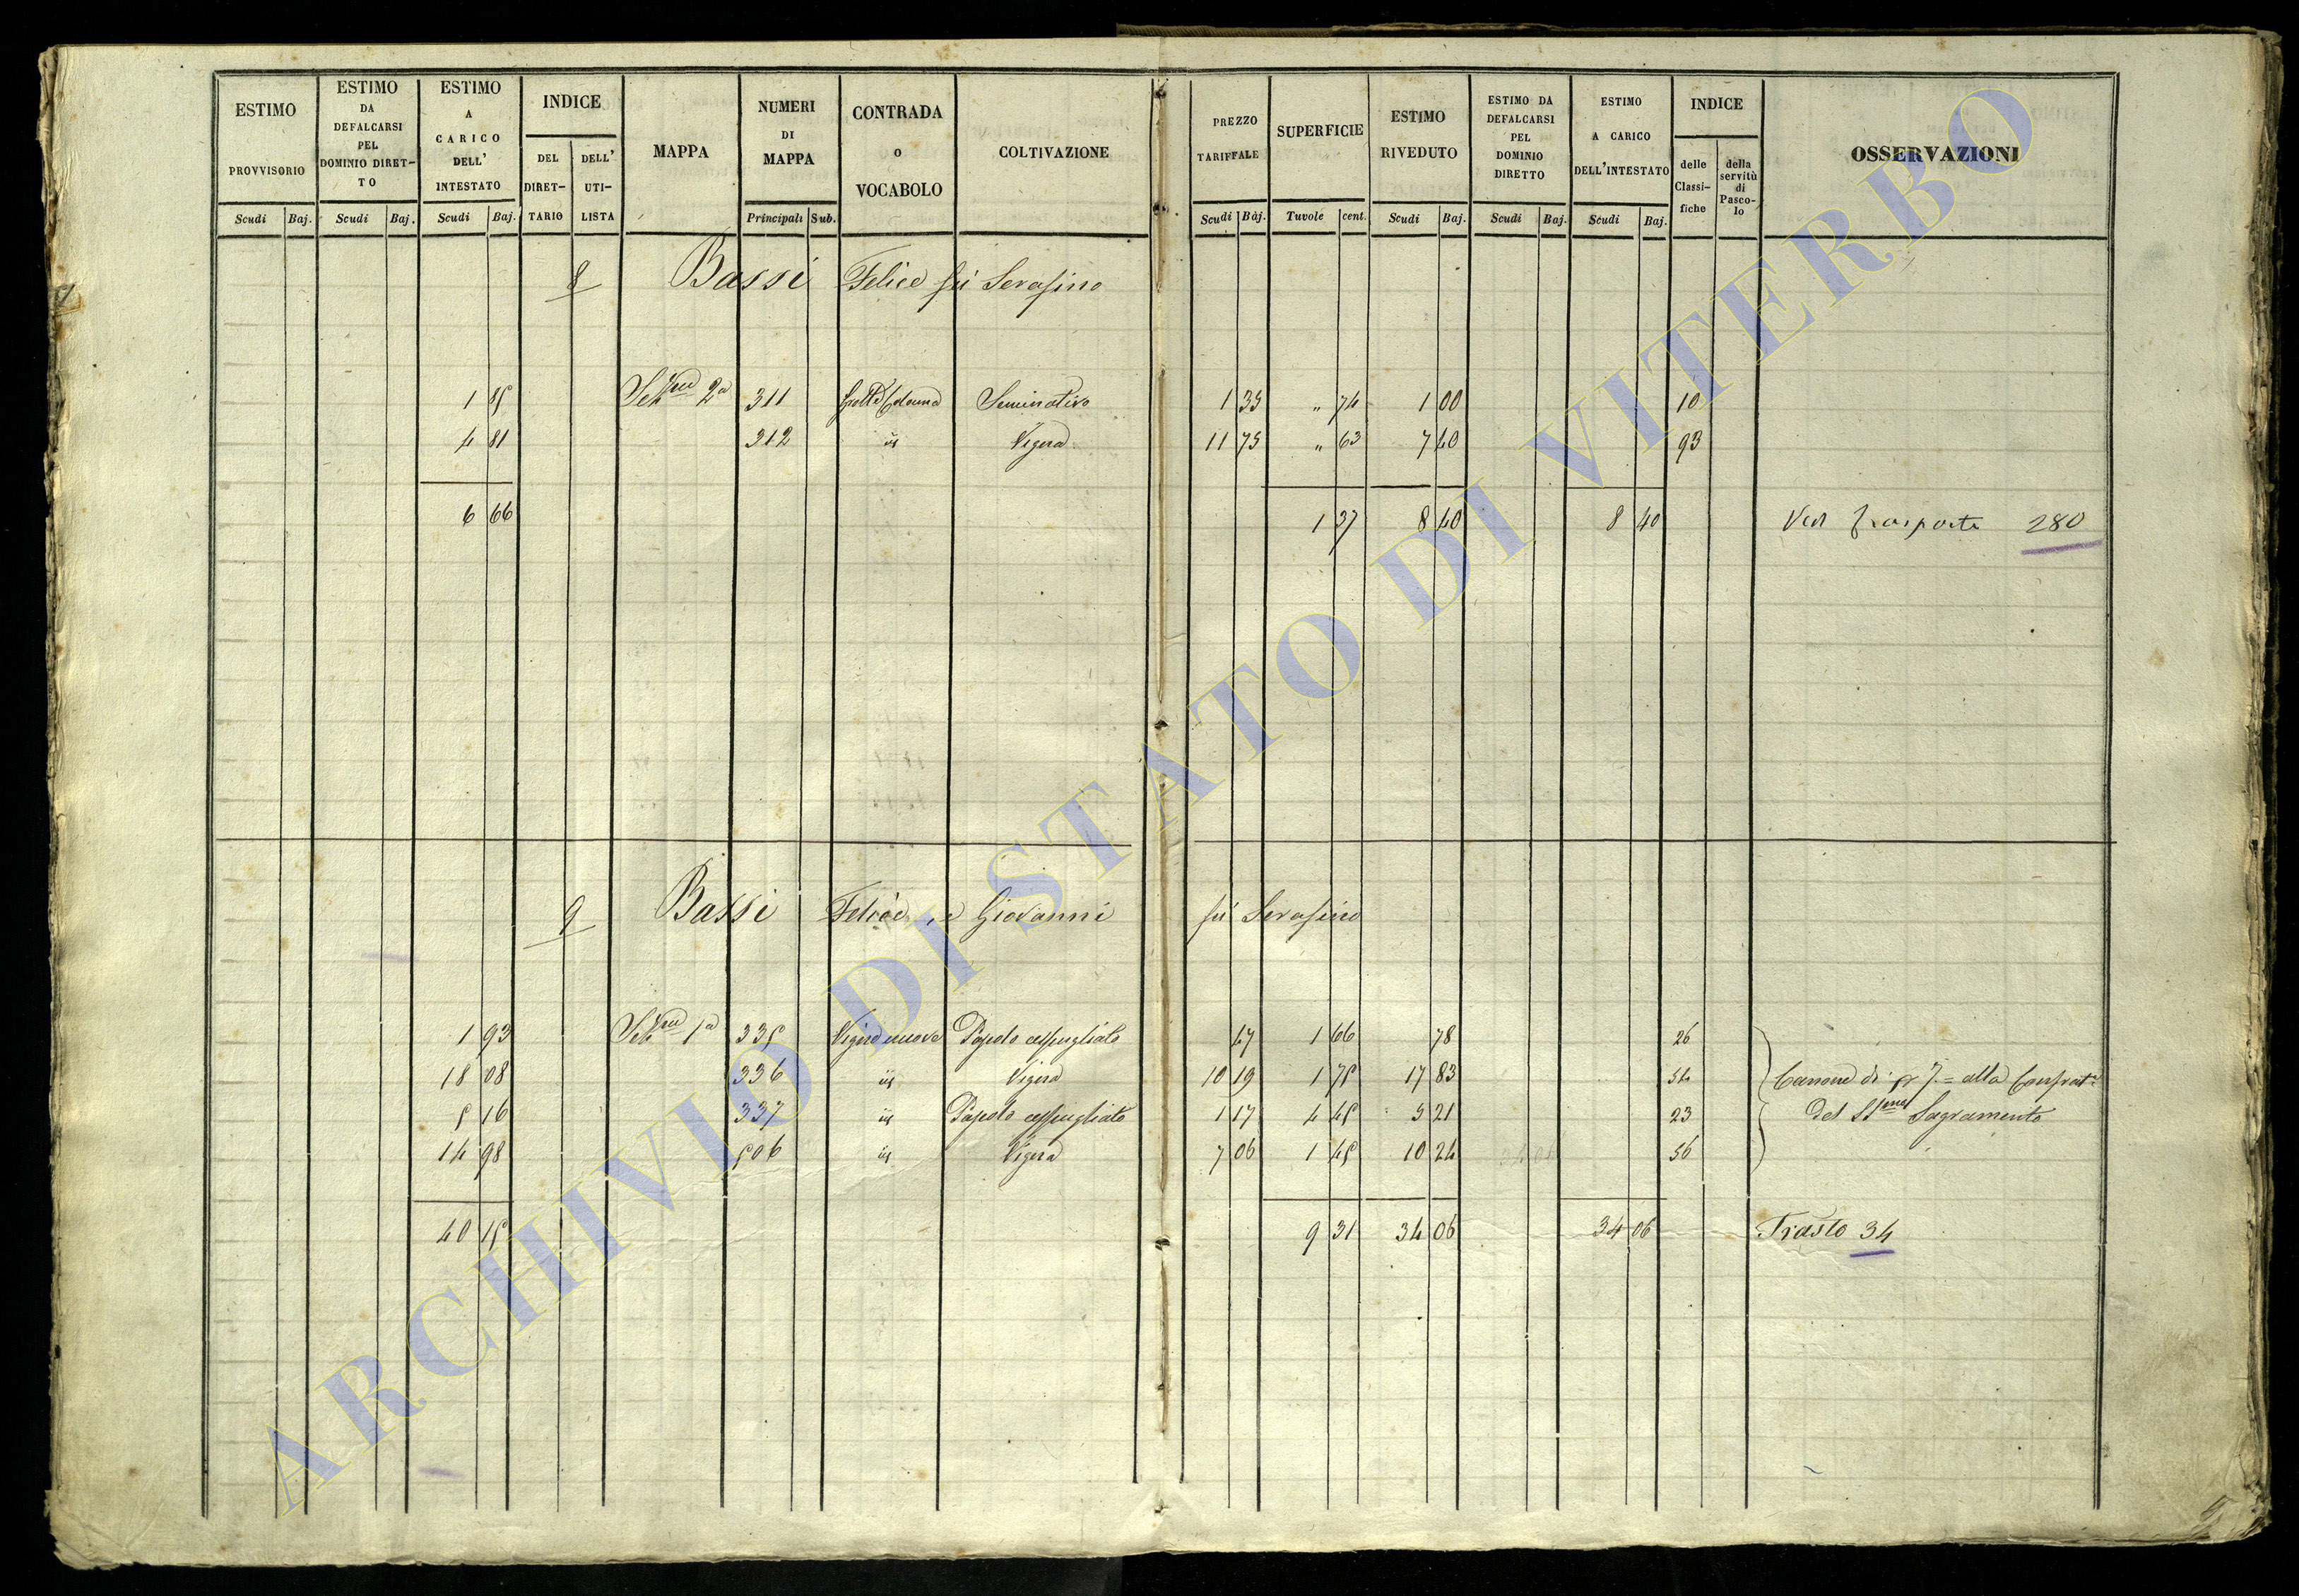 ESTIMO PROVVISORIO Scudi Baj.
ESTIMO DA DEFALCARSI PEL DOMINIO DIRET- TO Scudi Baj.
ESTIMO A CARICO DELL' INTESTATO Scudi Baj.
INDICE DEL DIRET- TARIO DELL' UTI- LISTA
MAPPA
NUMERI DI MAPPA Principali Sub.
CONTRADA o VOCABOLO
COLTIVAZIONE
PREZZO TARIFFALE Scudi Baj.
SUPERFICIE Tavole cent.
ESTIMO RIVEDUTO Scudi Baj.
ESTIMO DA DEFALCARSI PEL DOMINIO DIRETTO Scudi Baj.
ESTIMO A CARICO DELL'INTESTATO Scudi Baj.
INDICE delle Classi- fiche della servitù di Pasco- lo
OSSERVAZIONI
8 Bassi Felice fu Serafino
1 85 2a 311 Seminativo 1 35 " 74 1 00 10
4 81 312 id Vigna 11 75 " 63 7 40 93
6 66 1 37 8 40 8 40 Ved trasporto 280
9 Bassi Felice e Giovanni fu Serafino
1 93 1a 335 Vigna nuova Pascolo cespugliato 47 1 66 78 26
18 08 336 id Vigna 10 19 1 75 17 83 54 Canone di 7 = alla Confrat
5 16 337 id Pascolo cespugliato 1 17 4 45 5 21 23 del SSmo Sagramento
14 98 506 id Vigna 7 06 1 45 10 24 56
40 15 9 31 34 06 34 06 Trasto 34
ARCHIVIO DI STATO DI VITERBO